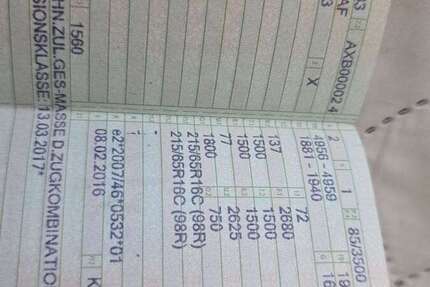 AF 1 85/3500
AXB00002 4 2
4956 - 4959
X 1881 - 1940
72
137 2680
1500 1500
1500 1500
77 2625
1800 750
215/65R16C (98R)
215/65R16C (98R)
-
-
e2*2007/46*0532*01
08.02.2016 K
1560
HN.ZUL.GES-MASSE D.ZUGKOMBINATIO
SIONSKLASSE:13.03.2017*